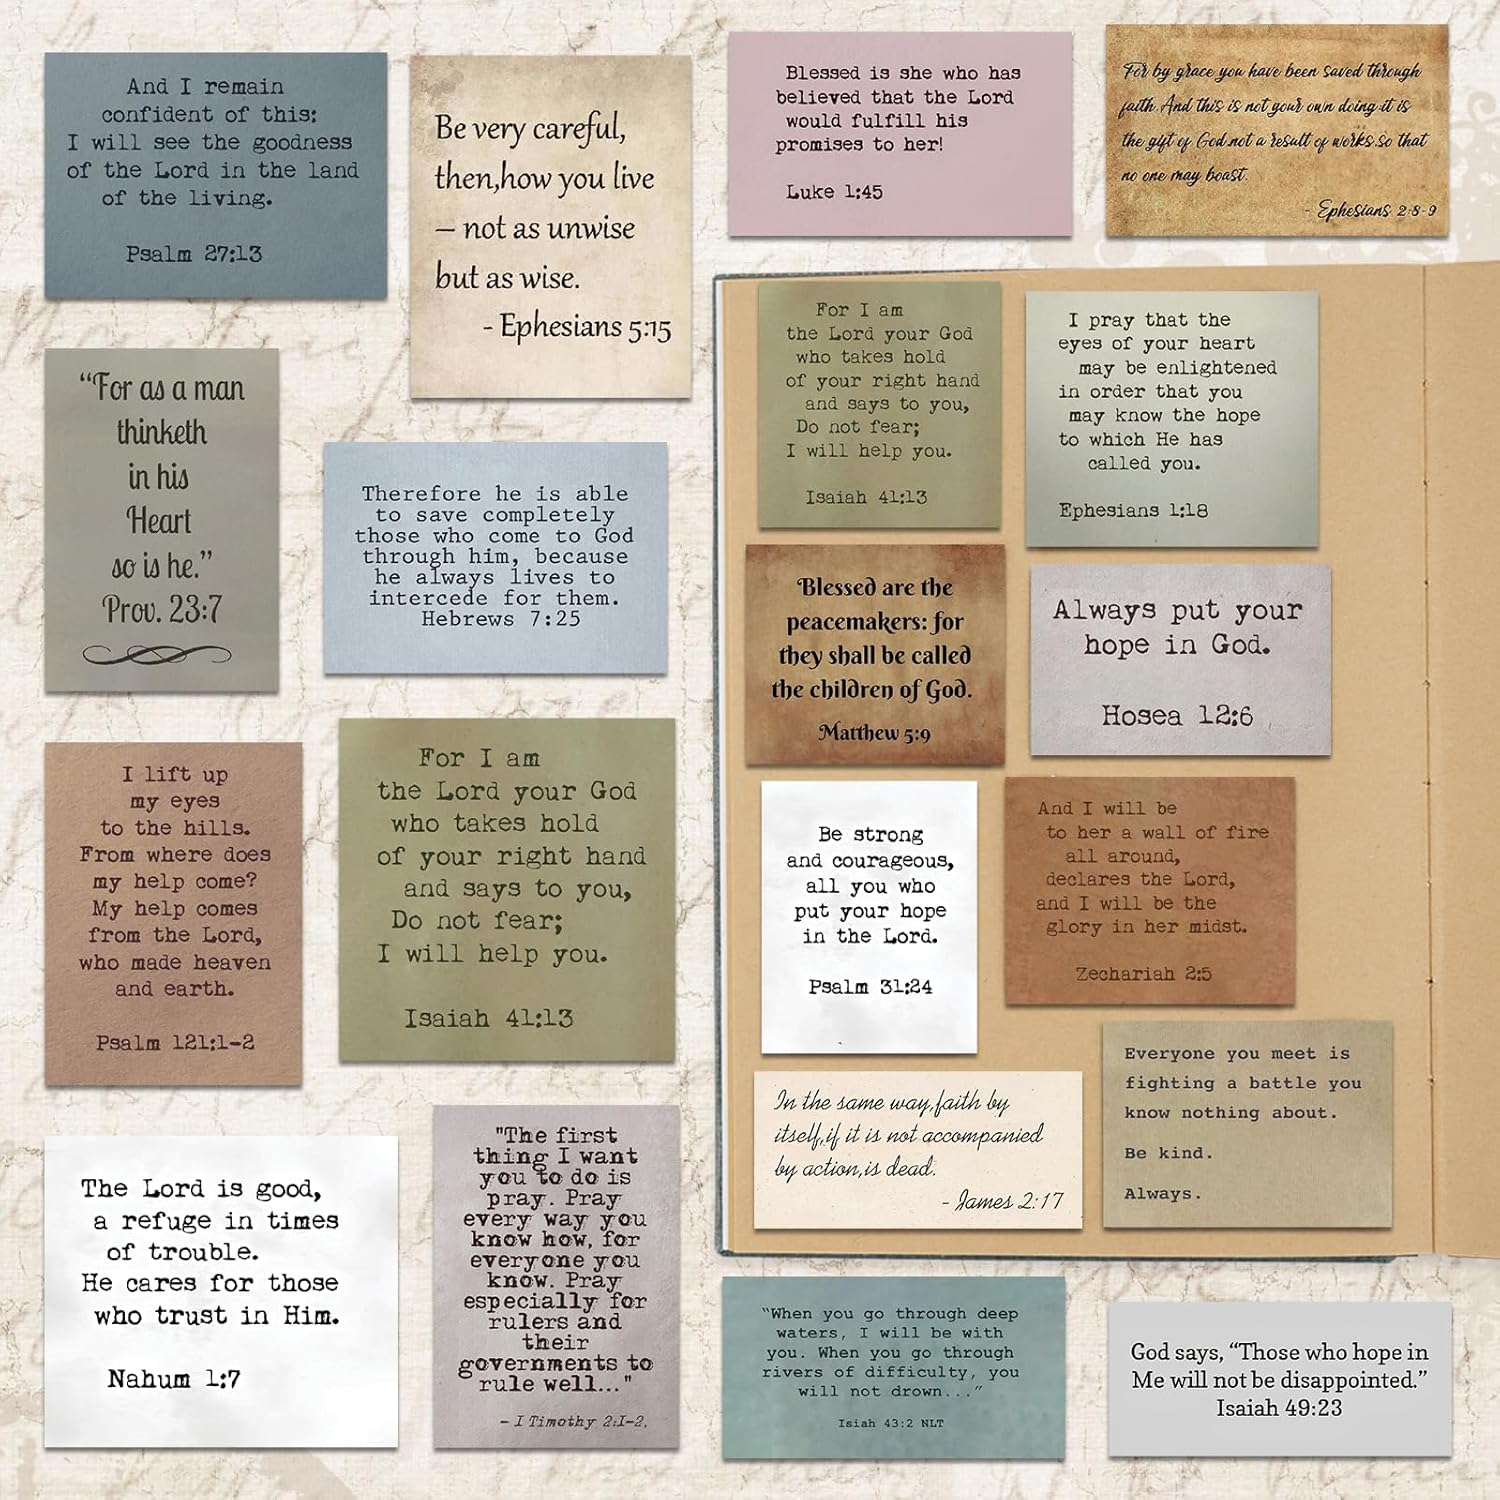 And I remain
confident of this:
I will see the goodness
of the Lord in the land
of the living.
Psalm 27:13
Be very careful,
then,how you live
– not as unwise
but as wise.
- Ephesians 5:15
Blessed is she who has
believed that the Lord
would fulfill his
promises to her!
Luke 1:45
For by grace you have been saved through
faith.And this is not your own doing:it is
the gift of God.not a result of works.so that
no one may boast.
- Ephesians 2-8-9
“For as a man
thinketh
in his
Heart
so is he.”
Prov. 23:7
Therefore he is able
to save completely
those who come to God
through him, because
he always lives to
intercede for them.
Hebrews 7:25
For I am
the Lord your God
who takes hold
of your right hand
and says to you,
Do not fear;
I will help you.
Isaiah 41:13
I pray that the
eyes of your heart
may be enlightened
in order that you
may know the hope
to which He has
called you.
Ephesians 1:18
Blessed are the
peacemakers: for
they shall be called
the children of God.
Matthew 5:9
Always put your
hope in God.
Hosea 12:6
I lift up
my eyes
to the hills.
From where does
my help come?
My help comes
from the Lord,
who made heaven
and earth.
Psalm 121:1-2
For I am
the Lord your God
who takes hold
of your right hand
and says to you,
Do not fear;
I will help you.
Isaiah 41:13
Be strong
and courageous,
all you who
put your hope
in the Lord.
Psalm 31:24
And I will be
to her a wall of fire
all around,
declares the Lord,
and I will be the
glory in her midst.
Zechariah 2:5
In the same way,faith by
itself,if it is not accompanied
by action,is dead.
- James 2:17
Everyone you meet is
fighting a battle you
know nothing about.
Be kind.
Always.
The Lord is good,
a refuge in times
of trouble.
He cares for those
who trust in Him.
Nahum 1:7
"The first
thing I want
you to do is
pray. Pray
every way you
know how, for
everyone you
know. Pray
especially for
rulers and
their
governments to
rule well..."
– I Timothy 2:1-2,
“When you go through deep
waters, I will be with
you. When you go through
rivers of difficulty, you
will not drown...”
Isiah 43:2 NLT
God says, “Those who hope in
Me will not be disappointed.”
Isaiah 49:23